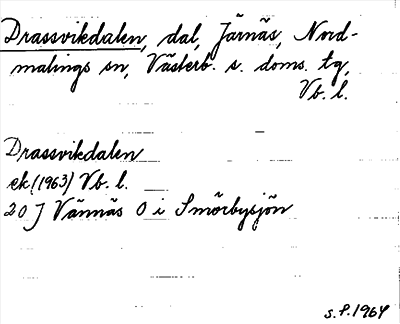 Drassvikdalen, dal, Järnäs, Nord-
malings sn, Västerb. s. doms. tg,
Vb. l.
Drassvikdalen
ek (1963) Vb. l.
20 J Vännäs O i Smörbysjön
S.P. 1964